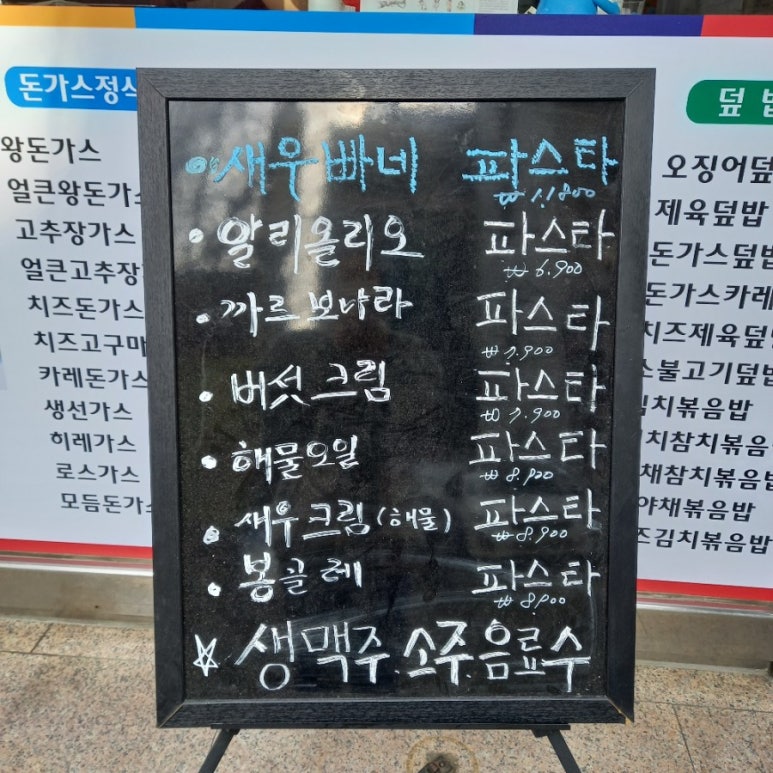 돈가스정식
왕돈가스
얼큰왕돈가스
고추장가스
얼큰고추장
치즈돈가스
치즈고구마
카레돈가스
생선가스
히레가스
로스가스
모듬돈가스
새우빠네 파스타
₩ 11.800
알리올리오 파스타
₩ 6.900
까르보나라 파스타
₩ 7.900
버섯크림 파스타
₩ 7.900
해물오일 파스타
₩ 8.900
새우크림(해물) 파스타
₩ 8.900
봉골레 파스타
₩ 8.900
생맥주.소주.음료수
덮밥
오징어덮
제육덮밥
돈가스덮밥
돈가스카레
치즈제육덮
소불고기덮밥
김치볶음밥
치참치볶음
채참치볶음
야채볶음밥
즈김치볶음밥